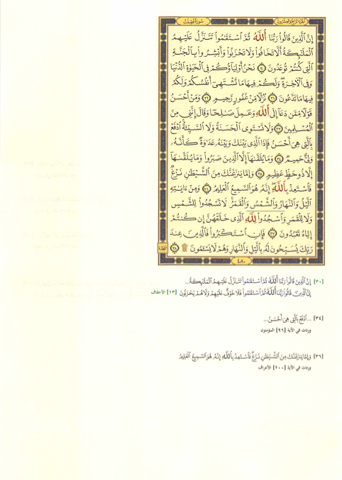 إِنَّ ٱلَّذِينَ قَالُوا۟ رَبُّنَا ٱللَّهُ ثُمَّ ٱسْتَقَٰمُوا۟ تَتَنَزَّلُ عَلَيْهِمُ
ٱلْمَلَٰٓئِكَةُ أَلَّا تَخَافُوا۟ وَلَا تَحْزَنُوا۟ وَأَبْشِرُوا۟ بِٱلْجَنَّةِ
ٱلَّتِى كُنتُمْ تُوعَدُونَ ٣٠ نَحْنُ أَوْلِيَآؤُكُمْ فِى ٱلْحَيَوٰةِ ٱلدُّنْيَا
وَفِى ٱلْءَاخِرَةِ وَلَكُمْ فِيهَا مَا تَشْتَهِىٓ أَنفُسُكُمْ وَلَكُمْ
فِيهَا مَا تَدَّعُونَ ٣١ نُزُلًا مِّنْ غَفُورٍ رَّحِيمٍ ٣٢ وَمَنْ أَحْسَنُ
قَوْلًا مِّمَّن دَعَآ إِلَى ٱللَّهِ وَعَمِلَ صَٰلِحًا وَقَالَ إِنَّنِى مِنَ
ٱلْمُسْلِمِينَ ٣٣ وَلَا تَسْتَوِى ٱلْحَسَنَةُ وَلَا ٱلسَّيِّئَةُ ٱدْفَعْ
بِٱلَّتِى هِىَ أَحْسَنُ فَإِذَا ٱلَّذِى بَيْنَكَ وَبَيْنَهُۥ عَدَٰوَةٌ كَأَنَّهُۥ
وَلِىٌّ حَمِيمٌ ٣٤ وَمَا يُلَقَّىٰهَآ إِلَّا ٱلَّذِينَ صَبَرُوا۟ وَمَا يُلَقَّىٰهَآ
إِلَّا ذُو حَظٍّ عَظِيمٍ ٣٥ وَإِمَّا يَنزَغَنَّكَ مِنَ ٱلشَّيْطَٰنِ نَزْغٌ
فَٱسْتَعِذْ بِٱللَّهِ إِنَّهُۥ هُوَ ٱلسَّمِيعُ ٱلْعَلِيمُ ٣٦ وَمِنْ ءَايَٰتِهِ
ٱلَّيْلُ وَٱلنَّهَارُ وَٱلشَّمْسُ وَٱلْقَمَرُ لَا تَسْجُدُوا۟ لِلشَّمْسِ
وَلَا لِلْقَمَرِ وَٱسْجُدُوا۟ لِلَّهِ ٱلَّذِى خَلَقَهُنَّ إِن كُنتُمْ
إِيَّاهُ تَعْبُدُونَ ٣٧ فَإِنِ ٱسْتَكْبَرُوا۟ فَٱلَّذِينَ عِندَ
رَبِّكَ يُسَبِّحُونَ لَهُۥ بِٱلَّيْلِ وَٱلنَّهَارِ وَهُمْ لَا يَسْـَٔمُونَ ۩ ٣٨
٤٨٠
(٣٠) إِنَّ ٱلَّذِينَ قَالُوا۟ رَبُّنَا ٱللَّهُ ثُمَّ ٱسْتَقَٰمُوا۟ تَتَنَزَّلُ عَلَيْهِمُ ٱلْمَلَٰٓئِكَةُ...
إِنَّ ٱلَّذِينَ قَالُوا۟ رَبُّنَا ٱللَّهُ ثُمَّ ٱسْتَقَٰمُوا۟ فَلَا خَوْفٌ عَلَيْهِمْ وَلَا هُمْ يَحْزَنُونَ [١٣] الأحقاف
(٣٤) ...ٱدْفَعْ بِٱلَّتِى هِىَ أَحْسَنُ...
وردت في الآية [٩٦] المؤمنون
(٣٦) وَإِمَّا يَنزَغَنَّكَ مِنَ ٱلشَّيْطَٰنِ نَزْغٌ فَٱسْتَعِذْ بِٱللَّهِ إِنَّهُۥ هُوَ ٱلسَّمِيعُ ٱلْعَلِيمُ
وردت في الآية [٢٠٠] الأعراف